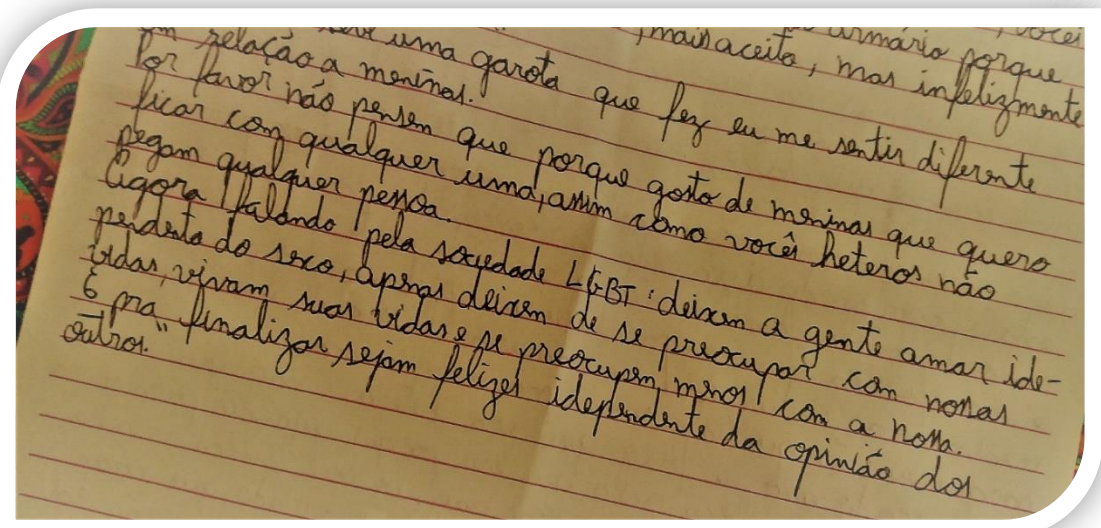 vocês
armário porque
mais aceito, mas infelizmente
uma garota que fez eu me sentir diferente
em relação a meninas.
Por favor não pensem que porque gosto de meninas que quero
ficar com qualquer uma, assim como vocês heteros não
pegam qualquer pessoa.
Agora falando pela sociedade LGBT: deixem a gente amar ide-
pendente do sexo, apenas deixem de se preocupar com nossas
vidas, vivam suas vidas e se preocupem menos com a nossa.
E pra finalizar sejam felizes idependente da opinião dos
outros."